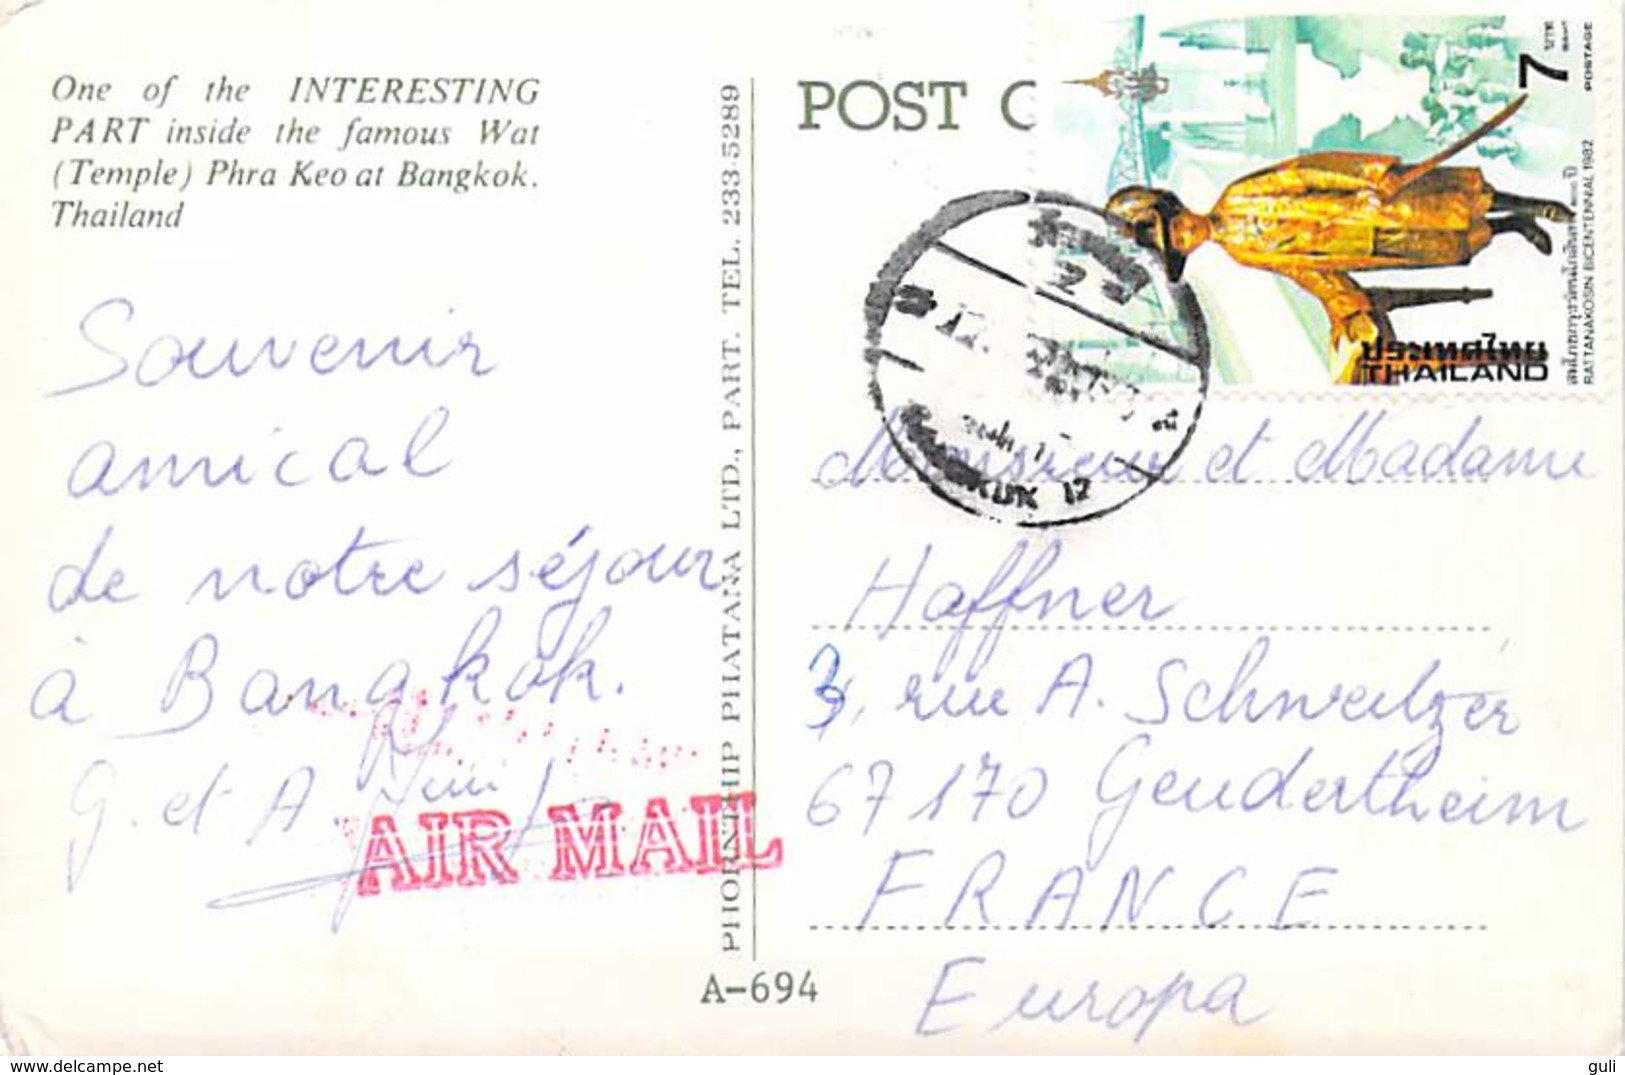 One of the INTERESTING
PART inside the famous Wat
(Temple) Phra Keo at Bangkok.
Thailand
Souvenir
amical
de notre séjour
à Bangkok.
G. et A
AIR MAIL
PHORNTHIP PHATANA LTD., PART. TEL. 233-5289
A-694
POST C
7
บาท
BAHT
POSTAGE
RATTANAKOSIN BICENTENNIAL 1982
ประเทศไทย
THAILAND
12
Monsieur et Madame
Haffner
3, rue A. Schweitzer
67170 Geudertheim
FRANCE
Europa
guli